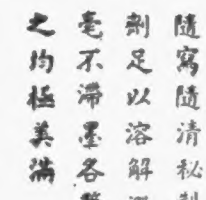 隨寫隨清秘製
劑足以溶解
毫不滯墨各
之均極美滿